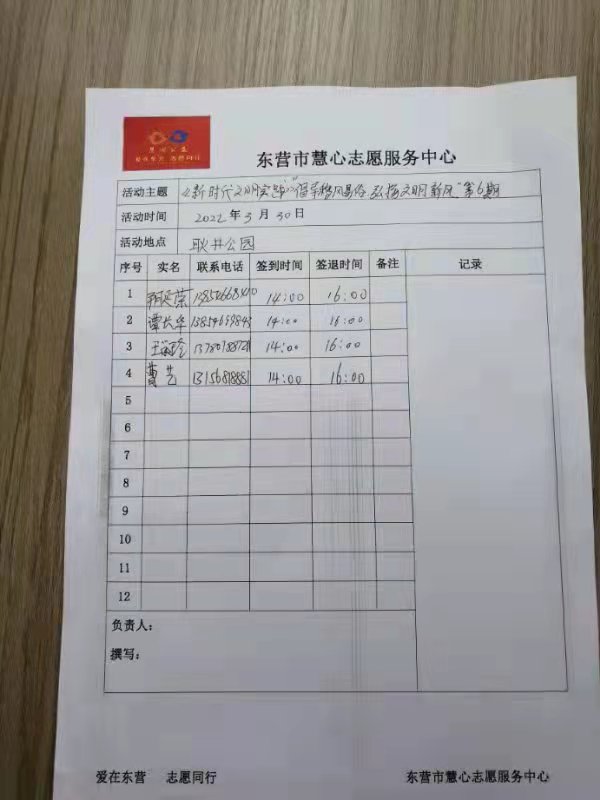 慧心公益
爱在东营 志愿同行
东营市慧心志愿服务中心
活动主题 《新时代文明实践》"倡导移风易俗 弘扬文明新风"第6期
活动时间 2022年3月30日
活动地点 耿井公园
序号 实名 联系电话 签到时间 签退时间 备注 记录
1 14:00 16:00
2 谭长华 14:00 16:00
3 14:00 16:00
4 曹艺 14:00 16:00
5
6
7
8
9
10
11
12
负责人：
撰写：
爱在东营 志愿同行 东营市慧心志愿服务中心